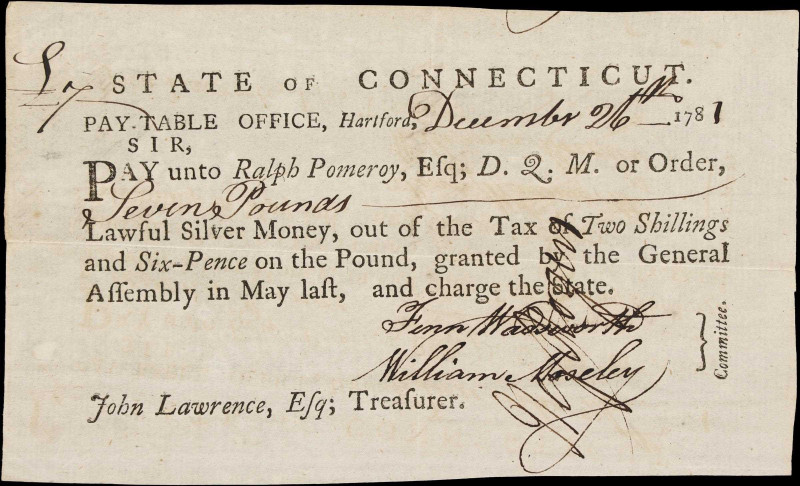 £7 STATE OF CONNECTICUT.
PAY-TABLE OFFICE, Hartford, December 26th 1781
SIR,
PAY unto Ralph Pomeroy, Esq; D. Q. M. or Order,
Seven Pounds
Lawful Silver Money, out of the Tax of Two Shillings
and Six-Pence on the Pound, granted by the General
Aſſembly in May laſt, and charge the State.
Fenn Wadsworth
William Moseley
Committee.
John Lawrence, Eſq; Treaſurer.